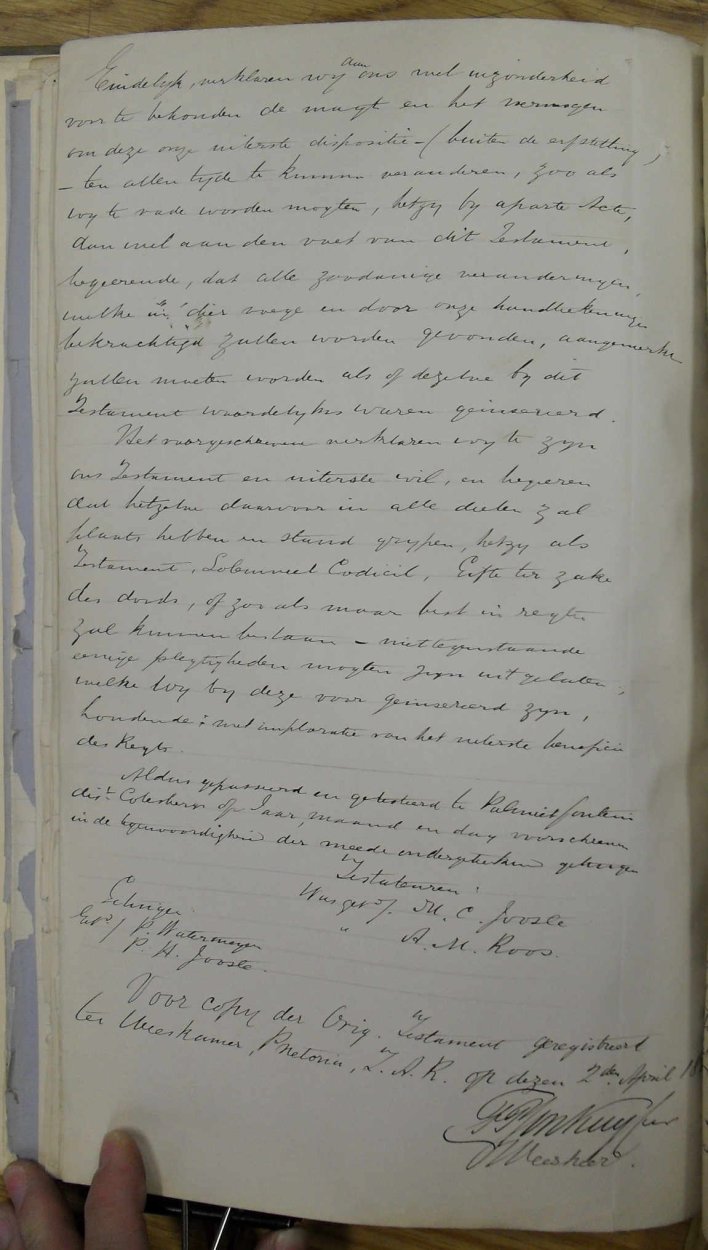 Eindelyk, verklaren wy aan ons wel inzonderheid
voor te behouden de magt en het vermogen
om deze onze uiterste dispositie – (buiten de erfstelling)
– ten allen tyde te kunnen veranderen, zoo als
wy te rade worden mogten, hetzy by aparte Acte,
dan wel aan den voet van dit Testament,
begeerende, dat alle zoodanige veranderingen,
welke in dier voege en door onze handteekeningen
bekrachtigd zullen worden gevonden, aangemerkt
zullen moeten worden als of dezelve by dit
Testament woordelyks waren geinsereerd.
Het voorgeschreven verklaren wy te zyn
ons Testament en uiterste wil, en begeren
dat hetzelve daarvoor in alle deelen zal
plaats hebben en stand grypen, hetzy als
Testament, Solemneel Codicil, Gifte ter zake
des doods, of zoo als maar best in regte
zal kunnen bestaan – niettegenstaande
eenige plegtigheden mogten zyn uitgelaten,
welke wy by deze voor geinsereerd zyn,
houdende; met imploratie van het uiterste beneficie
des Regts.
Aldus gepasseerd en getesteerd te Palmietfontein
dist. Colesberg op Jaar maand en dag voorschreven
in de tegenwoordigheid der mede ondergeteekende getuigen
Testateuren:
Was get. M. C. Jooste
" A. M. Roos.
Getuigen
Get. P. Watermeyer
P. H. Jooste.
Voor copy der Orig. Testament geregistreerd
ter Weeskamer, Pretoria, Z. A. R. op dezen 2den April 18
Weesheer.